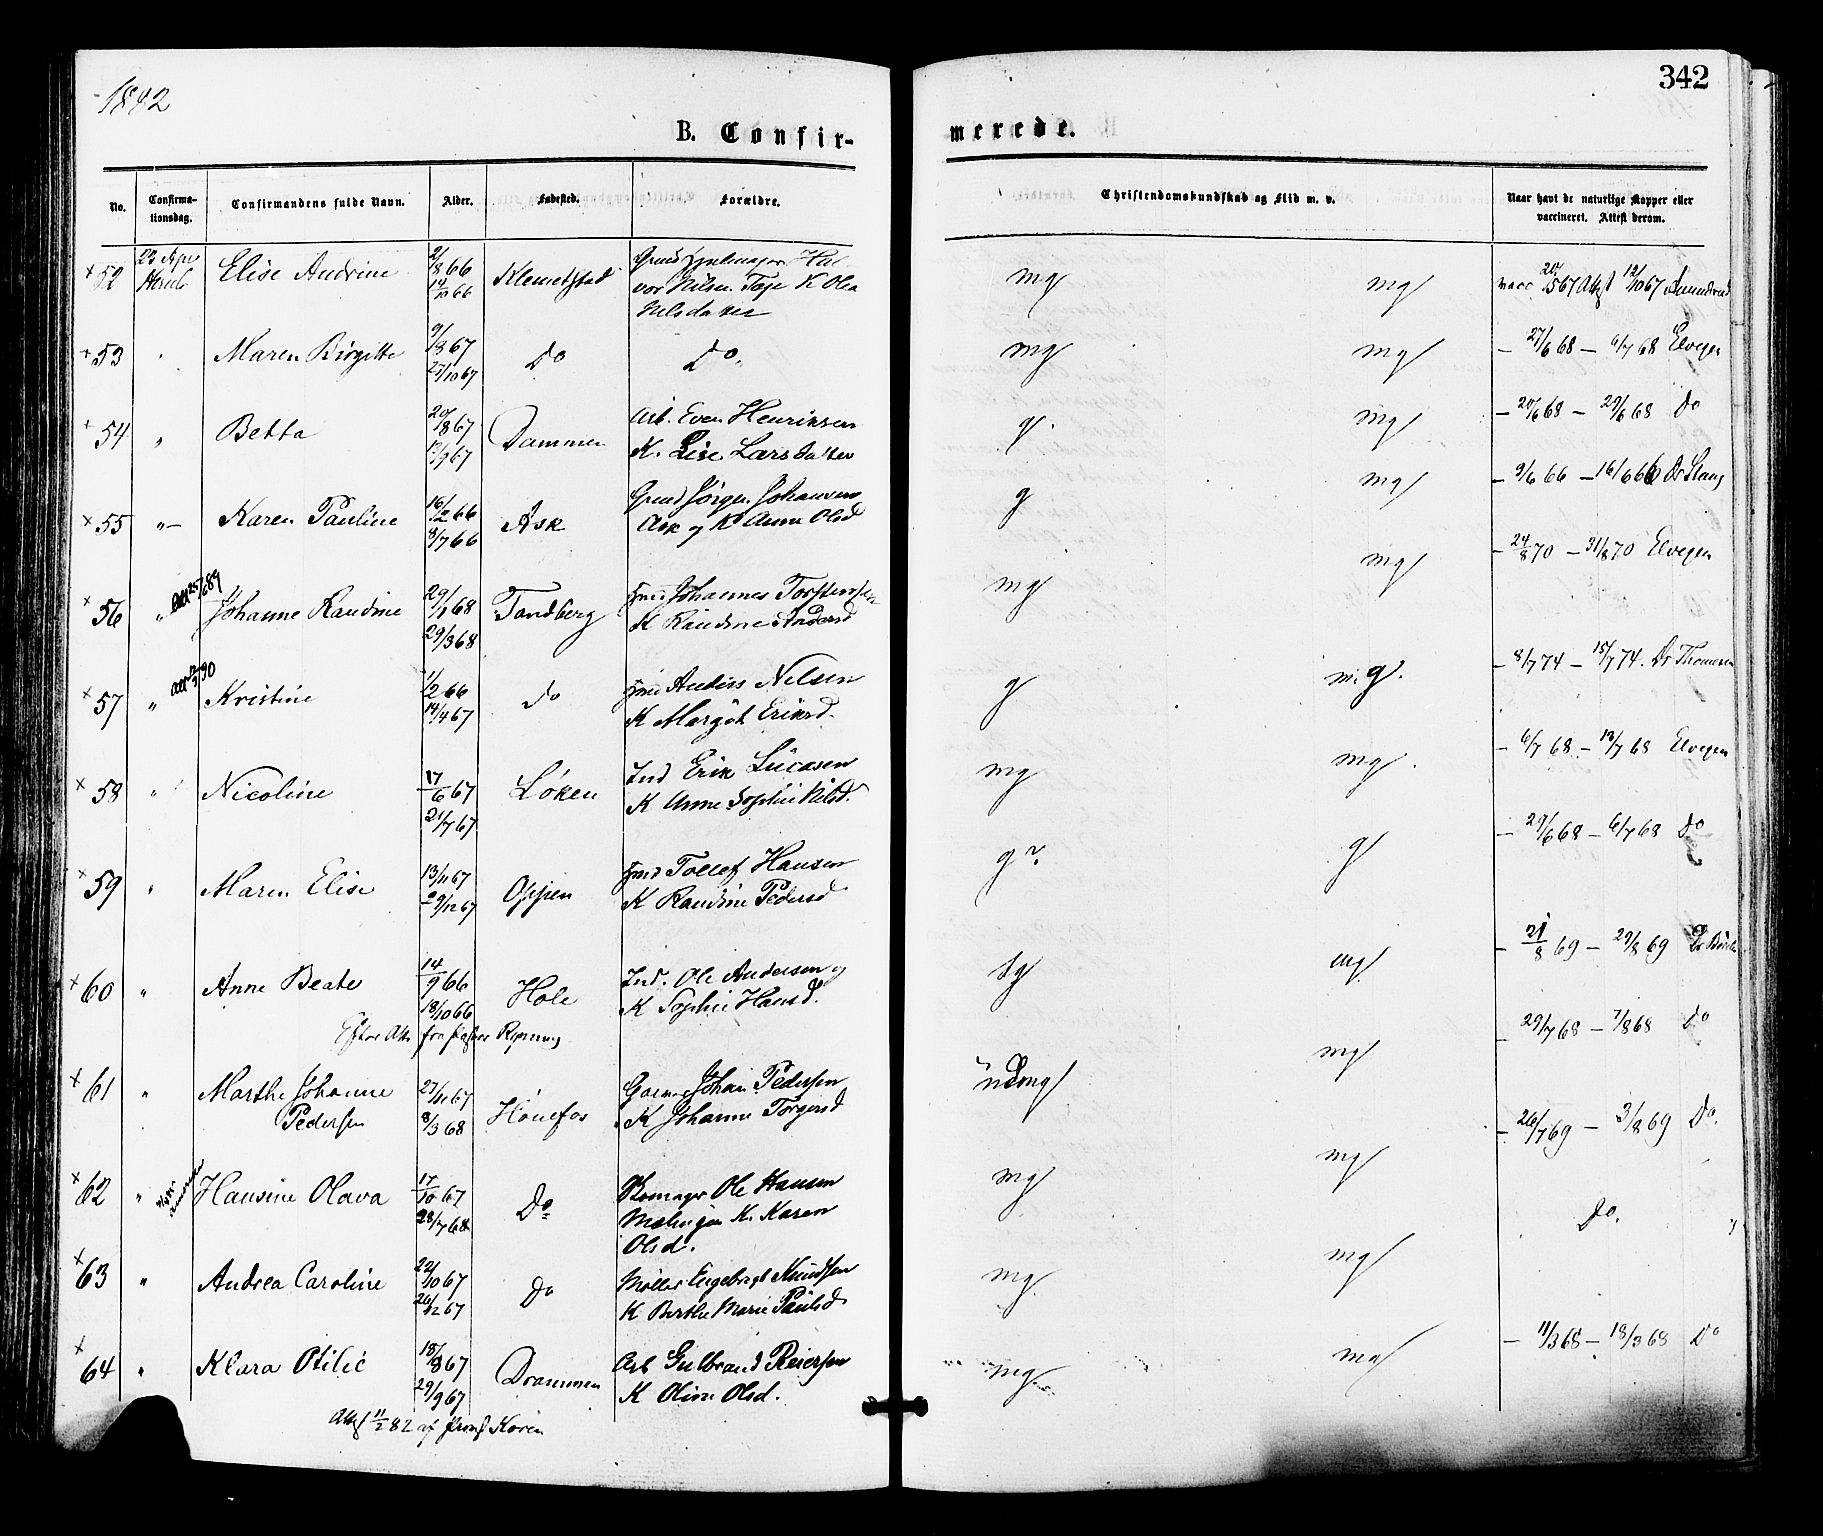 1842
342
B. Confir-
merede.
No.
Confirma-
tionsdag.
Confirmandens fulde Navn.
Alder.
Fødested.
Forældre.
Christendomskundskab og Flid m. v.
Naar havt de naturlige Kopper eller
vaccineret. Attest derom.
52 Elise Andrine 2/8 66 Klemetstad mg mg vacc
14/10 66 vor Nilsen K Olea
53 Maren Birgitte 9/8 67 Do Do mg mg – 27/6 68 – 6/7 68 Elvegen
27/10 67
54 " Betta 20/8 67 Dammen Arb. Even Henriksen g. mg – 20/6 68 – 29/6 68 Do
K. Lise Larsdatter
55 "– Karen Pauline 16/2 66 Ask Grd Jørgen Johansen g mg – 9/6 66 – 16/6 66 Dr Stang
8/7 66 Ask og K Anne Olsd
56 " Johanne Randine 29/1 68 Tandberg Johannes Torstensen mg mg – 24/8 70 – 31/8 70 Elvegen
29/3 68 K Randine Andersd
57 " Kristine 1/2 66 do Anders Nilsen g m.g. – 8/7 74 – 15/7 74. Dr Thomesen
14/4 67 K Margit Eriksd.
58 " Nicoline 17/6 67 Løken Ind Erik Lucasen mg mg. – 6/7 68 – 13/7 68 Elvegen
21/7 67 K Anne Sophie Nilsd.
59 " Maren Elise 13/11 67 Oppen Tollef Hansen g g – 29/6 68 – 6/7 68 Do
29/12 67 K Randine Pedersd
60 " Anne Beate 14/9 66 Hole Ind. Ole Andersen og Sg mg – 21/8 69 – 29/8 69
18/10 66 K Sophie Hansd.
Efter Att fra
61 " Marthe Johanne 27/11 67 Hønefos Johan Pedersen mg – 29/7 68 – 7/8 68 Do
Pedersen 8/3 68 K Johanne Torgersd
62 " Hansine Olava 17/10 67 Do Skomager Ole Hansen mg mg – 26/7 69 – 3/8 69 Do.
28/7 68 K. Karen
Olsd.
63 " Andrea Caroline 22/10 67 Do Møller Engebrigt Knudsen mg mg Do.
26/12 67 K Berthe Marie Paulsd
64 " Klara Otilie 18/8 67 Drammen Arb Gulbrand Reiersen mg mg – 11/3 68 – 18/3 68 Do
29/9 67 K Oline Olsd.
Att 11/2 82 af Koren